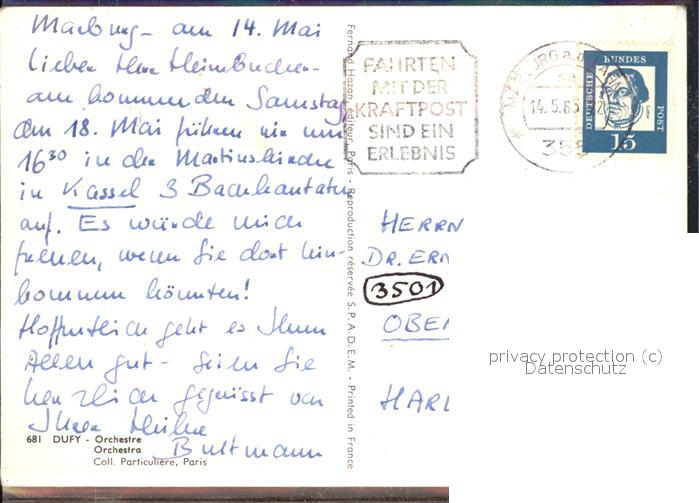 Marburg - am 14. Mai
Lieber Herr Heimbucher -
am kommenden Samstag,
dem 18. Mai führen wir um
16³⁰ in der Martinskirche
in Kassel 3 Bachkantaten
auf. Es würde mich
freuen, wenn Sie dort hin-
kommen könnten!
Hoffentlich geht es Ihnen
Allen gut - seien Sie
herzlich gegrüsst von
Ihrer
Bultmann
681 DUFY - Orchestre
Orchestra
Coll. Particulière, Paris
Fernand Hazan, éditeur, Paris - Reproduction réservée S.P.A.D.E.M. - Printed in France
FAHRTEN
MIT DER
KRAFTPOST
SIND EIN
ERLEBNIS
MARBURG a.d.
14.5.63
355
DEUTSCHE BUNDES POST
15
HERRN
DR. ERN
3501
OBE
HARL
privacy protection (c)
Datenschutz